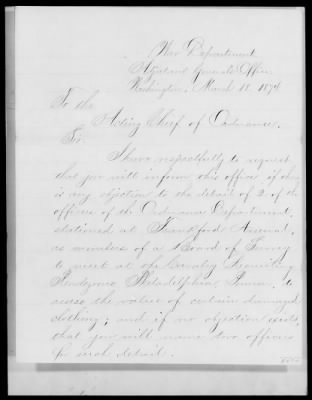 War Department
Adjutant General's Office
Washington, March 18, 1874
To the
Acting Chief of Ordnance.
Sir:
I have respectfully to request
that you will inform this office if there
is any objection to the detail of 2 of the
officers of the Ordnance Department,
stationed at Frankford Arsenal,
as members of a Board of Survey
to meet at the Cavalry Recruiting
Rendezvous, Philadelphia, Penna. to
assess the value of certain damaged
clothing; and if no objection exists,
that you will name two officers
for such detail.